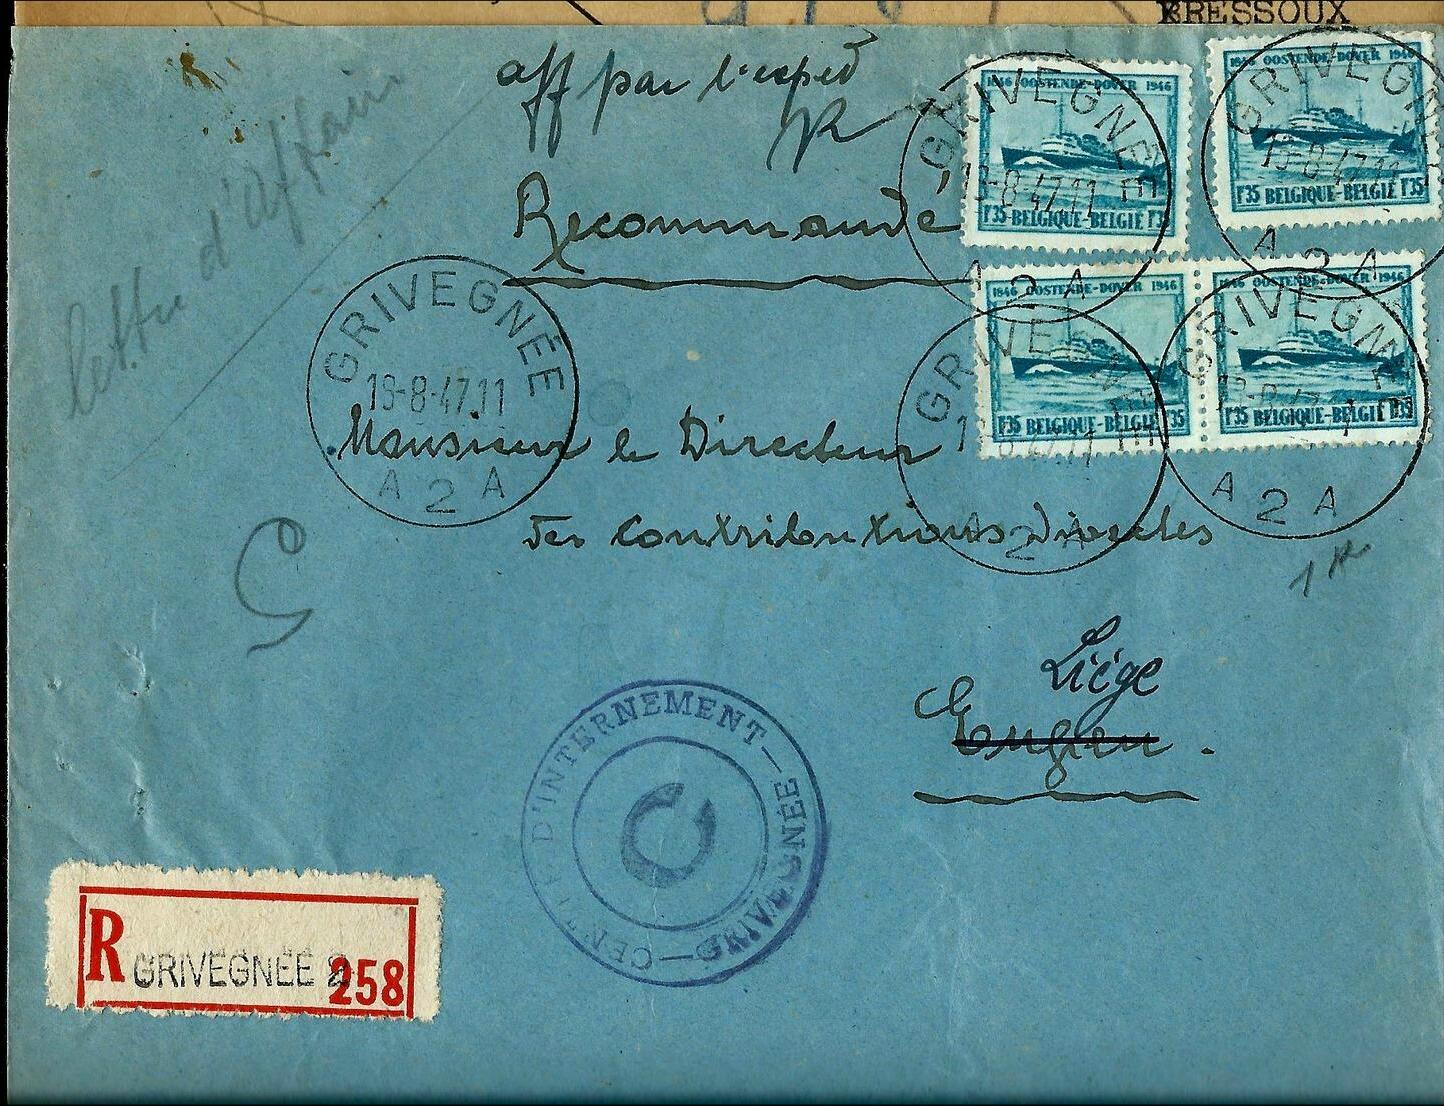 BRESSOUX
aff par l'exped
lettre d'affair
Recommandé
1846 OOSTENDE-DOVER 1946
F35 BELGIQUE-BELGIË F35
1846 OOSTENDE-DOVER 1946
F35 BELGIQUE-BELGIË F35
1846 OOSTENDE-DOVER 1946
F35 BELGIQUE-BELGIË F35
1846 OOSTENDE-DOVER 1946
F35 BELGIQUE-BELGIË F35
GRIVEGNÉE
19-8-47.11
A 2 A
GRIVEGNÉE
19-8-47.11
A 2 A
GRIVEGNÉE
19-8-47.11
A 2 A
GRIVEGNÉE
A 2 A
GRIVEGNÉE
19-8-47.11
A 2 A
Monsieur le Directeur
des Contributions directes
Liège
Engien.
CENTRE D'INTERNEMENT
R GRIVEGNÉE 2 258